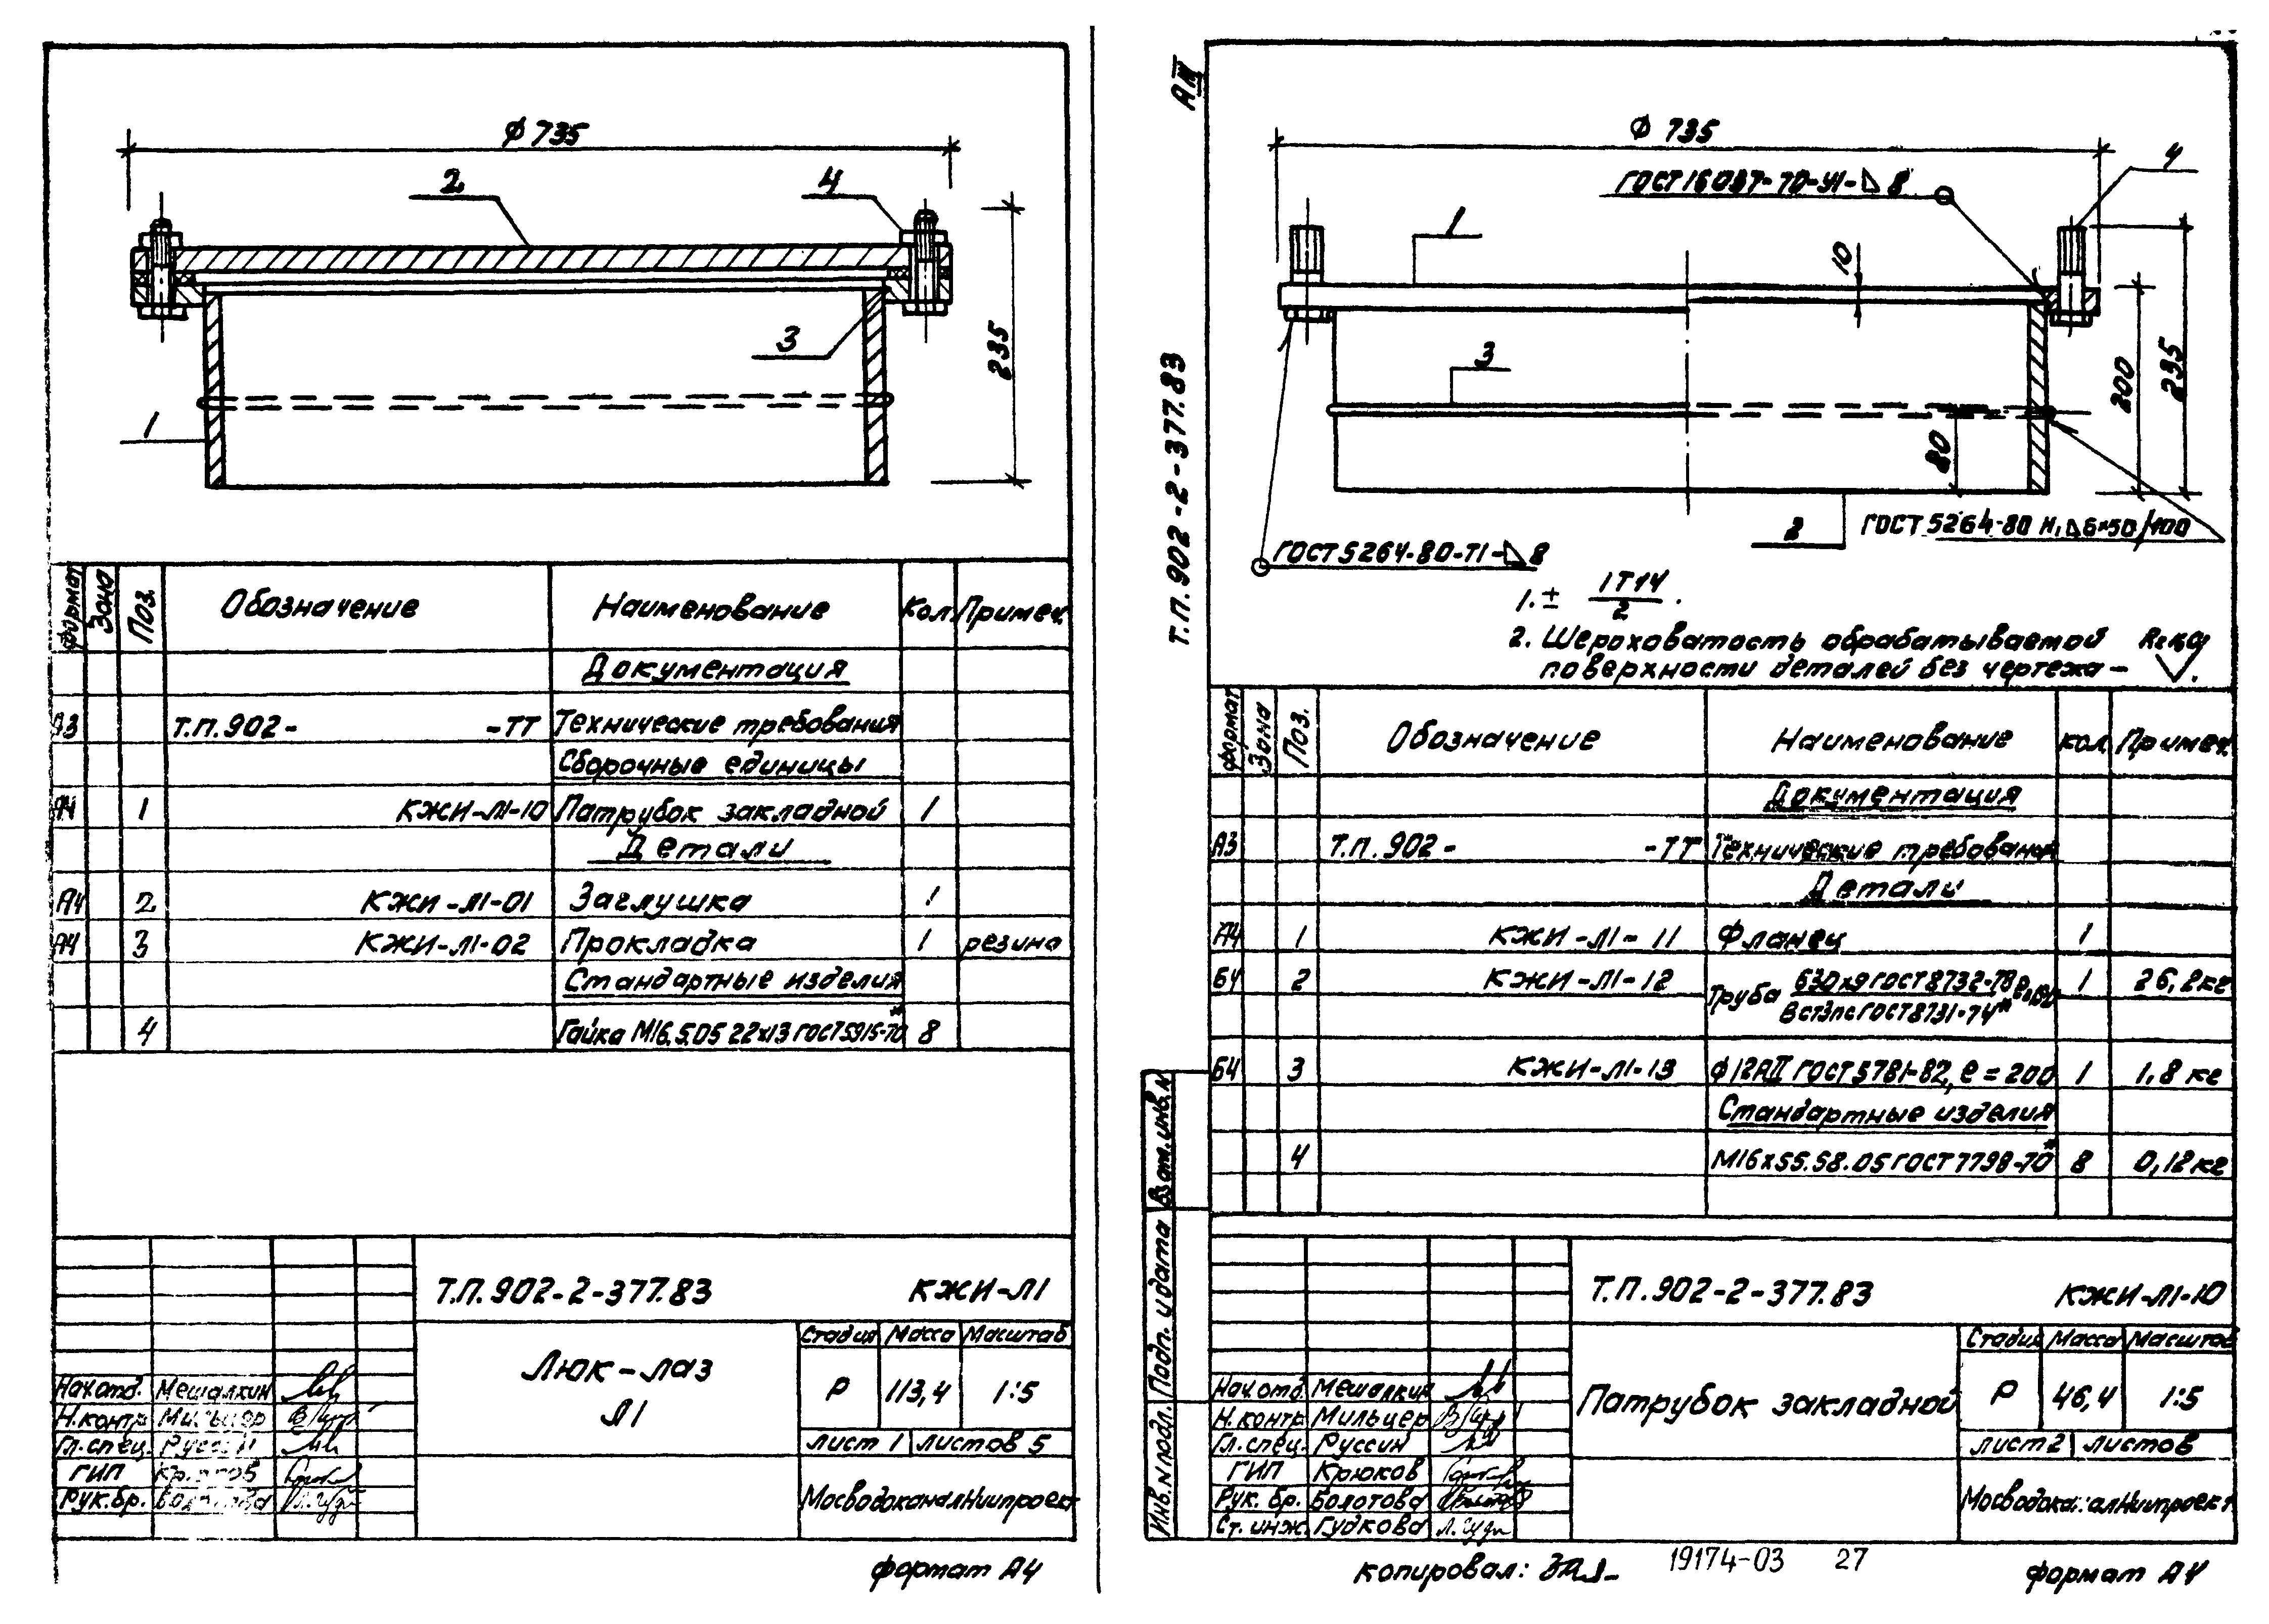 Ф 735
2
4
3
1
235
Формат Зона Поз. Обозначение Наименование Кол. Примеч.
Документация
А3 Т.П. 902- -ТТ Технические требования
Сборочные единицы
А4 1 КЖИ-Л1-10 Патрубок закладной 1
Детали
А4 2 КЖИ-Л1-01 Заглушка 1
А4 3 КЖИ-Л1-02 Прокладка 1 резина
Стандартные изделия
4 Гайка М16.5.05 22х13 ГОСТ 5915-70* 8
Т.П. 902-2-377.83 КЖИ-Л1
Люк-лаз
Л1
Стадия Масса Масштаб
Р 113,4 1:5
Лист 1 Листов 5
МосводоканалНиипроект
Нач.отд. Мешалкин
Н.контр. Мильцер
Гл.спец. Руссин
ГИП Крюков
Рук.бр. Болотова
формат А4
А IV
Т.П. 902-2-377.83
Ф 735
ГОСТ 16037-70-У1-⊿8
4
1
10
3
200
235
80
2
ГОСТ 5264-80 Н1 ⊿6×50/100
ГОСТ 5264-80-Т1-⊿8
1. ± IT14/2 .
2. Шероховатость обрабатываемой
поверхности деталей без чертежа -
Формат Зона Поз. Обозначение Наименование Кол. Примеч.
Документация
А3 Т.П. 902- -ТТ Технические требования
Детали
А4 1 КЖИ-Л1-11 Фланец 1
Б4 2 КЖИ-Л1-12 Труба 630х9 ГОСТ 8732-78 1 26,2кг
Вст3пс ГОСТ 8731-74*
Б4 3 КЖИ-Л1-13 Ф12АII ГОСТ 5781-82, е=200 1 1,8 кг
Стандартные изделия
4 М16х55.58.05 ГОСТ 7798-70* 8 0,12кг
Взам.инв.N
Подп. и дата
Инв.N подл.
Т.П. 902-2-377.83 КЖИ-Л1-10
Патрубок закладной
Стадия Масса Масштаб
Р 46,4 1:5
Лист 2 Листов
МосводоканалНиипроект
Нач.отд. Мешалкин
Н.контр. Мильцер
Гл.спец. Руссин
ГИП Крюков
Рук. бр. Болотова
Ст. инж. Гудкова
копировал:
19174-03 27
формат А4